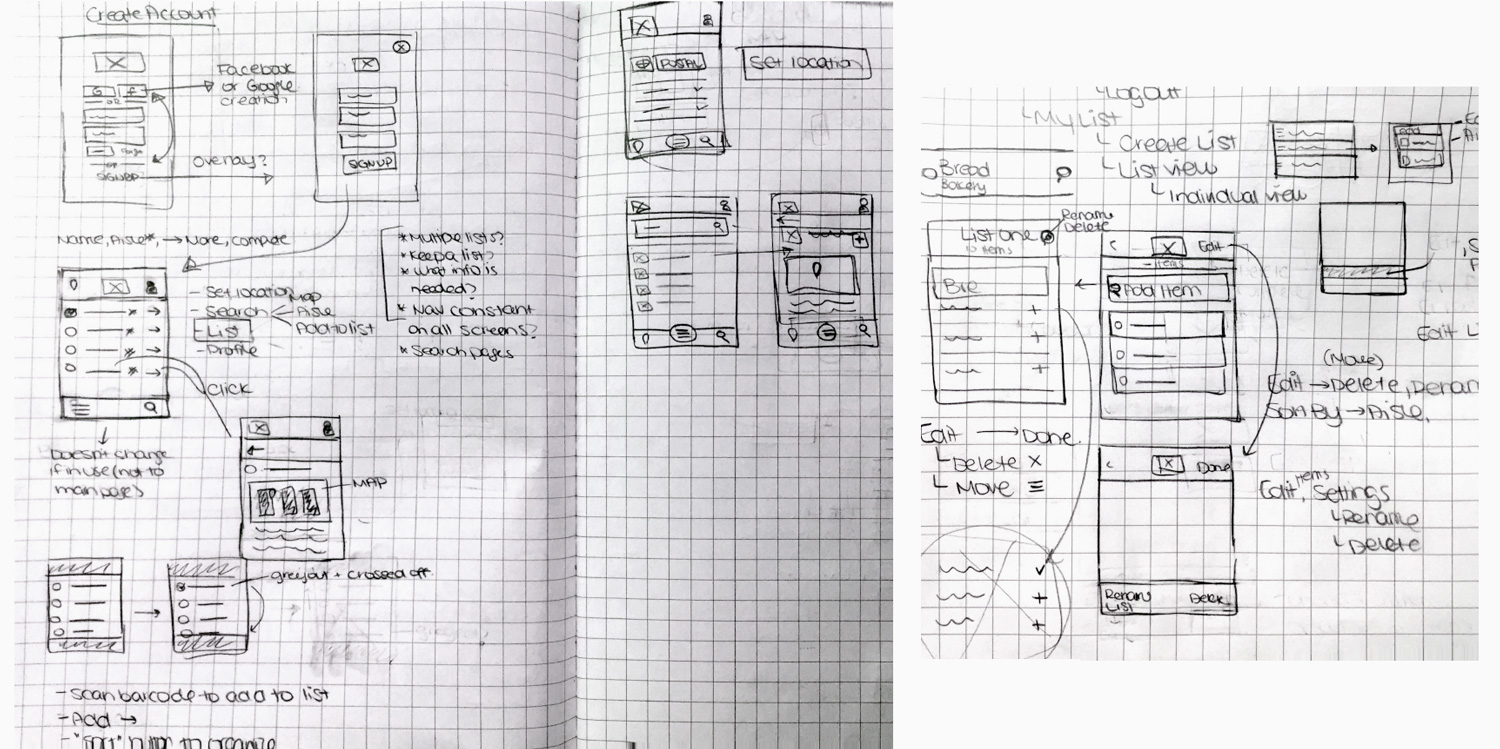 Create Account
G f
OR
Facebook
or Google
creation
Overlay?
OR
SIGNUP
SIGNUP
Name, Aisle*, → More, compute
- Set location
- Search
Map
Aisle
Add to list
- List
- Profile
* Multiple lists?
* Keep a list?
* What info is
needed?
* Nav constant
on all screens?
* Search pages
click
Doesn't change
if in use (not to
main pages)
MAP
greyout + crossed off
- Scan barcode to add to list
- Add →
- "Sort" button to organize
POSTAL
Set location
Logout
My List
Create List
List view
Individual view
Bread
Bakery
Rename
Delete
List One
10 items
Bre
Edit → Done
Delete X
Move ≡
Edit
items
Add Item
Add
(Move)
Edit → Delete, Renam
Sort By → Aisle,
Edit L
Done
Edit items, Settings
Rename
Delete
Rename
List
Delete